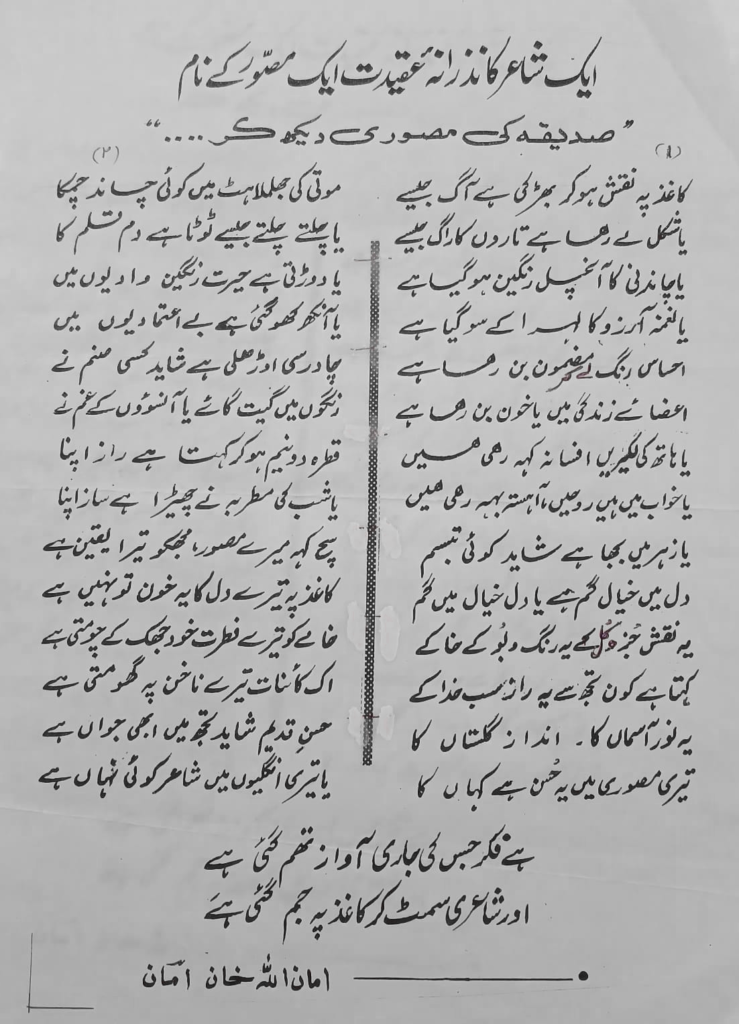 ایک شاعر کا نذرانۂ عقیدت ایک مصّور کے نام
”صدیقہ کی مصوری دیکھ کر ....“
(۱)
کاغذ پہ نقش ہو کر بھڑکی ہے آگ جیسے
یا شکل لے رھا ہے تاروں کا راگ جیسے
یا چاندنی کا آنچل رنگین ہو گیا ہے
یا نغمہ آرزو کا لہرا کے سو گیا ہے
احساس رنگ لے کر مضمون بن رھا ہے
اعضائے زندگی میں یا خون بن رھا ہے
یا ہاتھ کی لکیریں افسانہ کہہ رھی ھیں
یا خواب میں ہیں روحیں، آہستہ بہہ رھی ھیں
یا زہر میں بجھا ہے شاید کوئی تبسم
دل میں خیال گم ہے یا دل خیال میں گم
یہ نقش جُز و کُل کے یہ رنگ و بُو کے خاکے
کہتا ہے کون تجھ سے یہ راز سب خدا کے
یہ نور آسماں کا ۔ انداز گلستاں کا
تیری مصوری میں یہ حُسن ہے کہاں کا
(۲)
موتی کی جھلملاہٹ میں کوئی چاند چمکا
یا چلتے چلتے جیسے ٹوٹا ہے دم قلم کا
یا دوڑتی ہے حیرت رنگین وادیوں میں
یا آنکھ کھو گئی ہے بے اعتمادیوں میں
چادر سی اوڑھ لی ہے شاید کسی صنم نے
رنگوں میں گیت گائے یا آنسوؤں کے غم نے
قطرہ دو نیم ہو کر کہتا ہے راز اپنا
یا شب کی مطربہ نے چھیڑا ہے ساز اپنا
سچ کہہ میرے مصور، مجھکو تیرا یقین ہے
کاغذ پہ تیرے دل کا یہ خون تو نہیں ہے
خامے کو تیرے فطرت خود جھک کے چومتی ہے
اک کائنات تیرے ناخن پہ گھومتی ہے
حسنِ قدیم شاید تجھ میں ابھی جواں ہے
یا تیری انگلیوں میں شاعر کوئی نہاں ہے
ہے فکر جس کی جاری آواز تھم گئی ہے
اور شاعری سمٹ کر کاغذ پہ جم گئی ہے
امان اللہ خان امّان